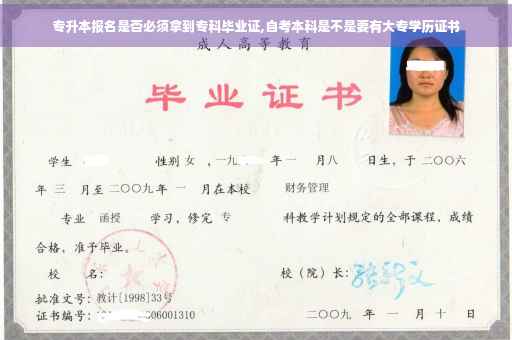 专升本报名是否必须拿到专科毕业证,自考本科是不是要有大专学历证书
成人高等教育
毕业证书
学生 性别 女 ,一九 年一 月八 日生，于二〇〇六
年 三 月至二〇〇九年 一 月在本校 财务管理
专业 函授 学习，修完 专 科教学计划规定的全部课程，成绩
合格，准予毕业。
校 名： 校（院）长：
批准文号：教计[1998]33号
证书编号： 06001310 二〇〇九 年 一 月 十 日